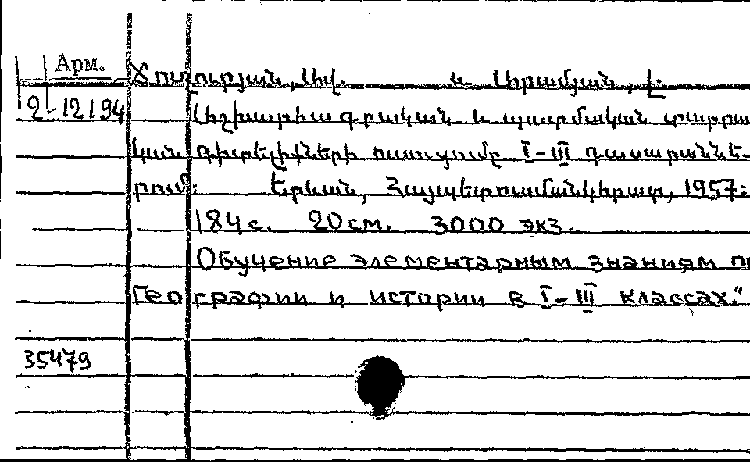 Арм.
Ճուղուրյան, Ավ. և Աբրամյան, Լ.
2-12194
Աշխարհագրական և պատմական տարրա
կան գիտելիքների ուսուցումը I-III դասարաննե-
րում: Երևան, Հայպետուսմանկհրատ, 1957:
184 с. 20 см. 3000 экз.
Обучение элементарным знаниям п
географии и истории в I-III классах."
35479